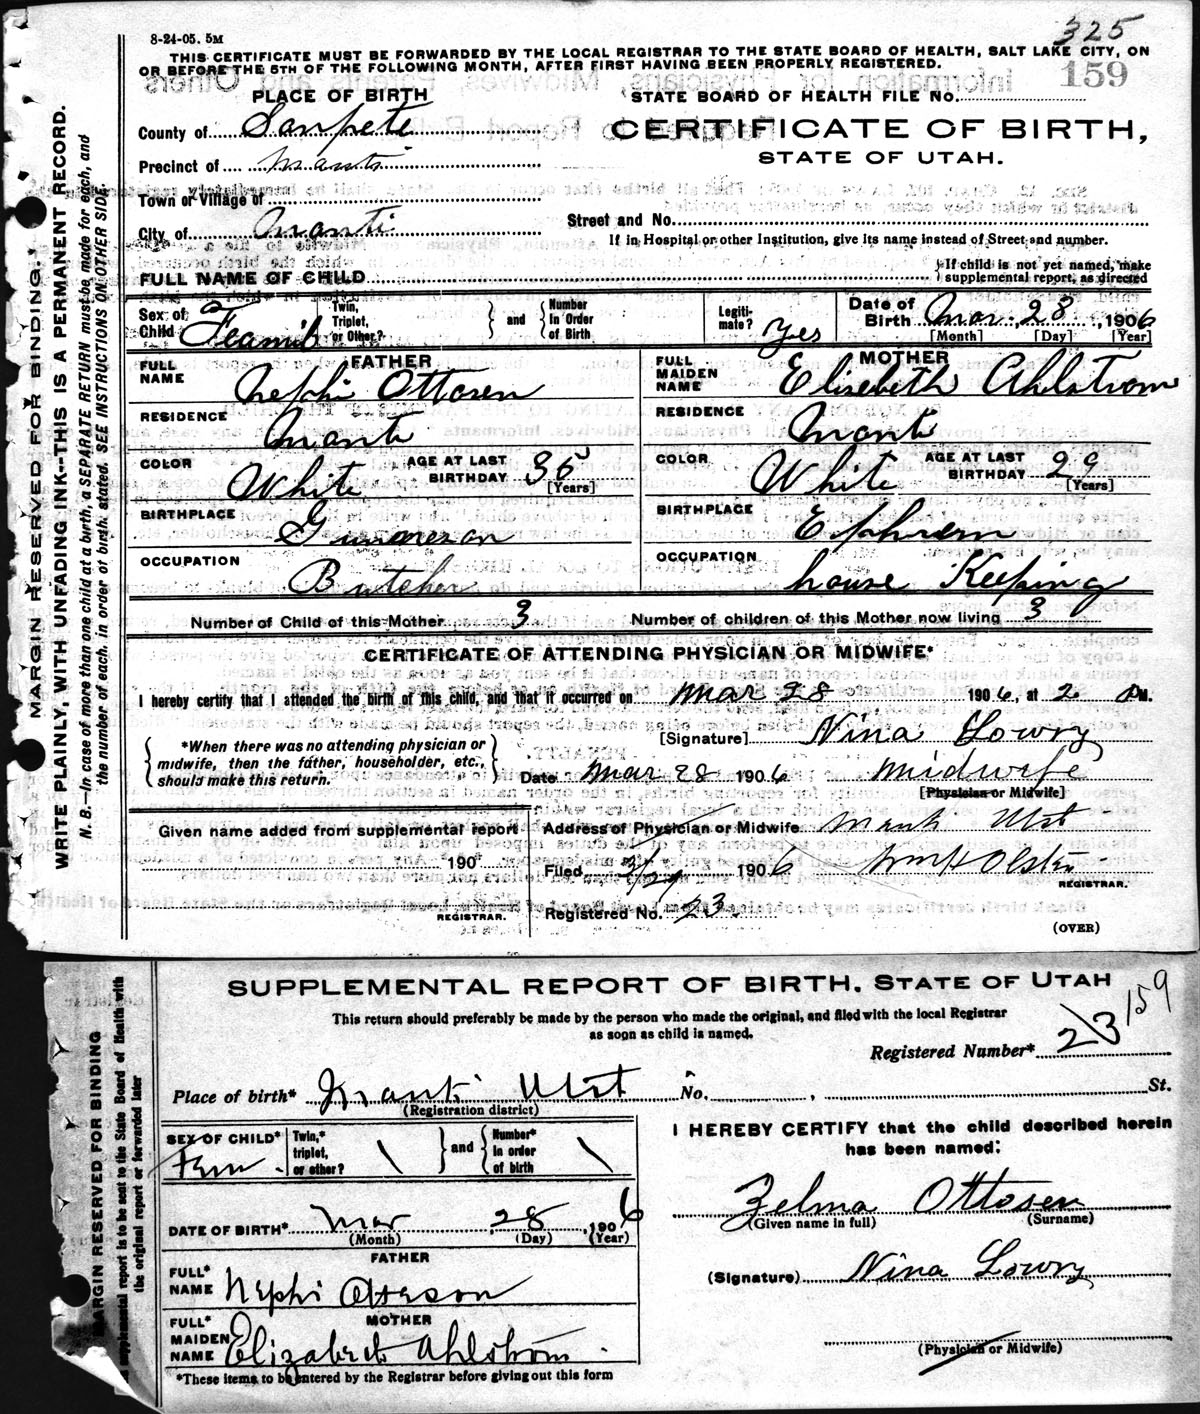 325
8-24-05. 5M
THIS CERTIFICATE MUST BE FORWARDED BY THE LOCAL REGISTRAR TO THE STATE BOARD OF HEALTH, SALT LAKE CITY, ON
OR BEFORE THE 5TH OF THE FOLLOWING MONTH, AFTER FIRST HAVING BEEN PROPERLY REGISTERED.
159
PLACE OF BIRTH
STATE BOARD OF HEALTH FILE NO.
County of Sanpete
CERTIFICATE OF BIRTH,
Precinct of Manti
STATE OF UTAH.
Town or Village of
City of Manti
Street and No.
If in Hospital or other Institution, give its name instead of Street and number.
FULL NAME OF CHILD
If child is not yet named, make supplemental report, as directed
Sex of Child Feamil
Twin, Triplet, or Other?
and
Number In Order of Birth
Legitimate? Yes
Date of Birth Mar. 28, 1906
[Month] [Day] [Year]
FATHER
MOTHER
FULL NAME Nephi Ottosen
FULL MAIDEN NAME Elisebeth Ahlstrom
RESIDENCE Manti
RESIDENCE Manti
COLOR White
AGE AT LAST BIRTHDAY 35 [Years]
COLOR White
AGE AT LAST BIRTHDAY 29 [Years]
BIRTHPLACE
BIRTHPLACE Ephrem
OCCUPATION Butcher
OCCUPATION house Keeping
Number of Child of this Mother 3
Number of children of this Mother now living 3
CERTIFICATE OF ATTENDING PHYSICIAN OR MIDWIFE*
I hereby certify that I attended the birth of this child, and that it occurred on Mar 28 1906, at 2 PM.
*When there was no attending physician or midwife, then the father, householder, etc., should make this return.
[Signature] Nina Lowry
Date Mar 28 1906 Midwife
[Physician or Midwife]
Given name added from supplemental report
190
REGISTRAR.
Address of Physician or Midwife Manti Utah
Filed 3/29 1906 Wm H Olsten
REGISTRAR.
Registered No. 23.
(OVER)
MARGIN RESERVED FOR BINDING.
WRITE PLAINLY, WITH UNFADING INK--THIS IS A PERMANENT RECORD.
N. B.—In case of more than one child at a birth, a SEPARATE RETURN must be made for each, and
the number of each, in order of birth, stated. SEE INSTRUCTIONS ON OTHER SIDE.
SUPPLEMENTAL REPORT OF BIRTH, STATE OF UTAH
159
This return should preferably be made by the person who made the original, and filed with the local Registrar
as soon as child is named.
Registered Number* 23
Place of birth* Manti Utah No. , St.
(Registration district)
SEX OF CHILD* Fem.
Twin,* triplet, or other? \
and
Number* in order of birth \
DATE OF BIRTH* Mar 28, 1906
(Month) (Day) (Year)
FATHER
FULL* NAME Nephi Otteson
MOTHER
FULL* MAIDEN NAME Elizabeth Ahlstrom.
*These items to be entered by the Registrar before giving out this form
I HEREBY CERTIFY that the child described herein
has been named:
Zelma Ottosen
(Given name in full) (Surname)
(Signature) Nina Lowry
(Physician or Midwife)
MARGIN RESERVED FOR BINDING
supplemental report is to be sent to the State Board of Health with
the original report or forwarded later